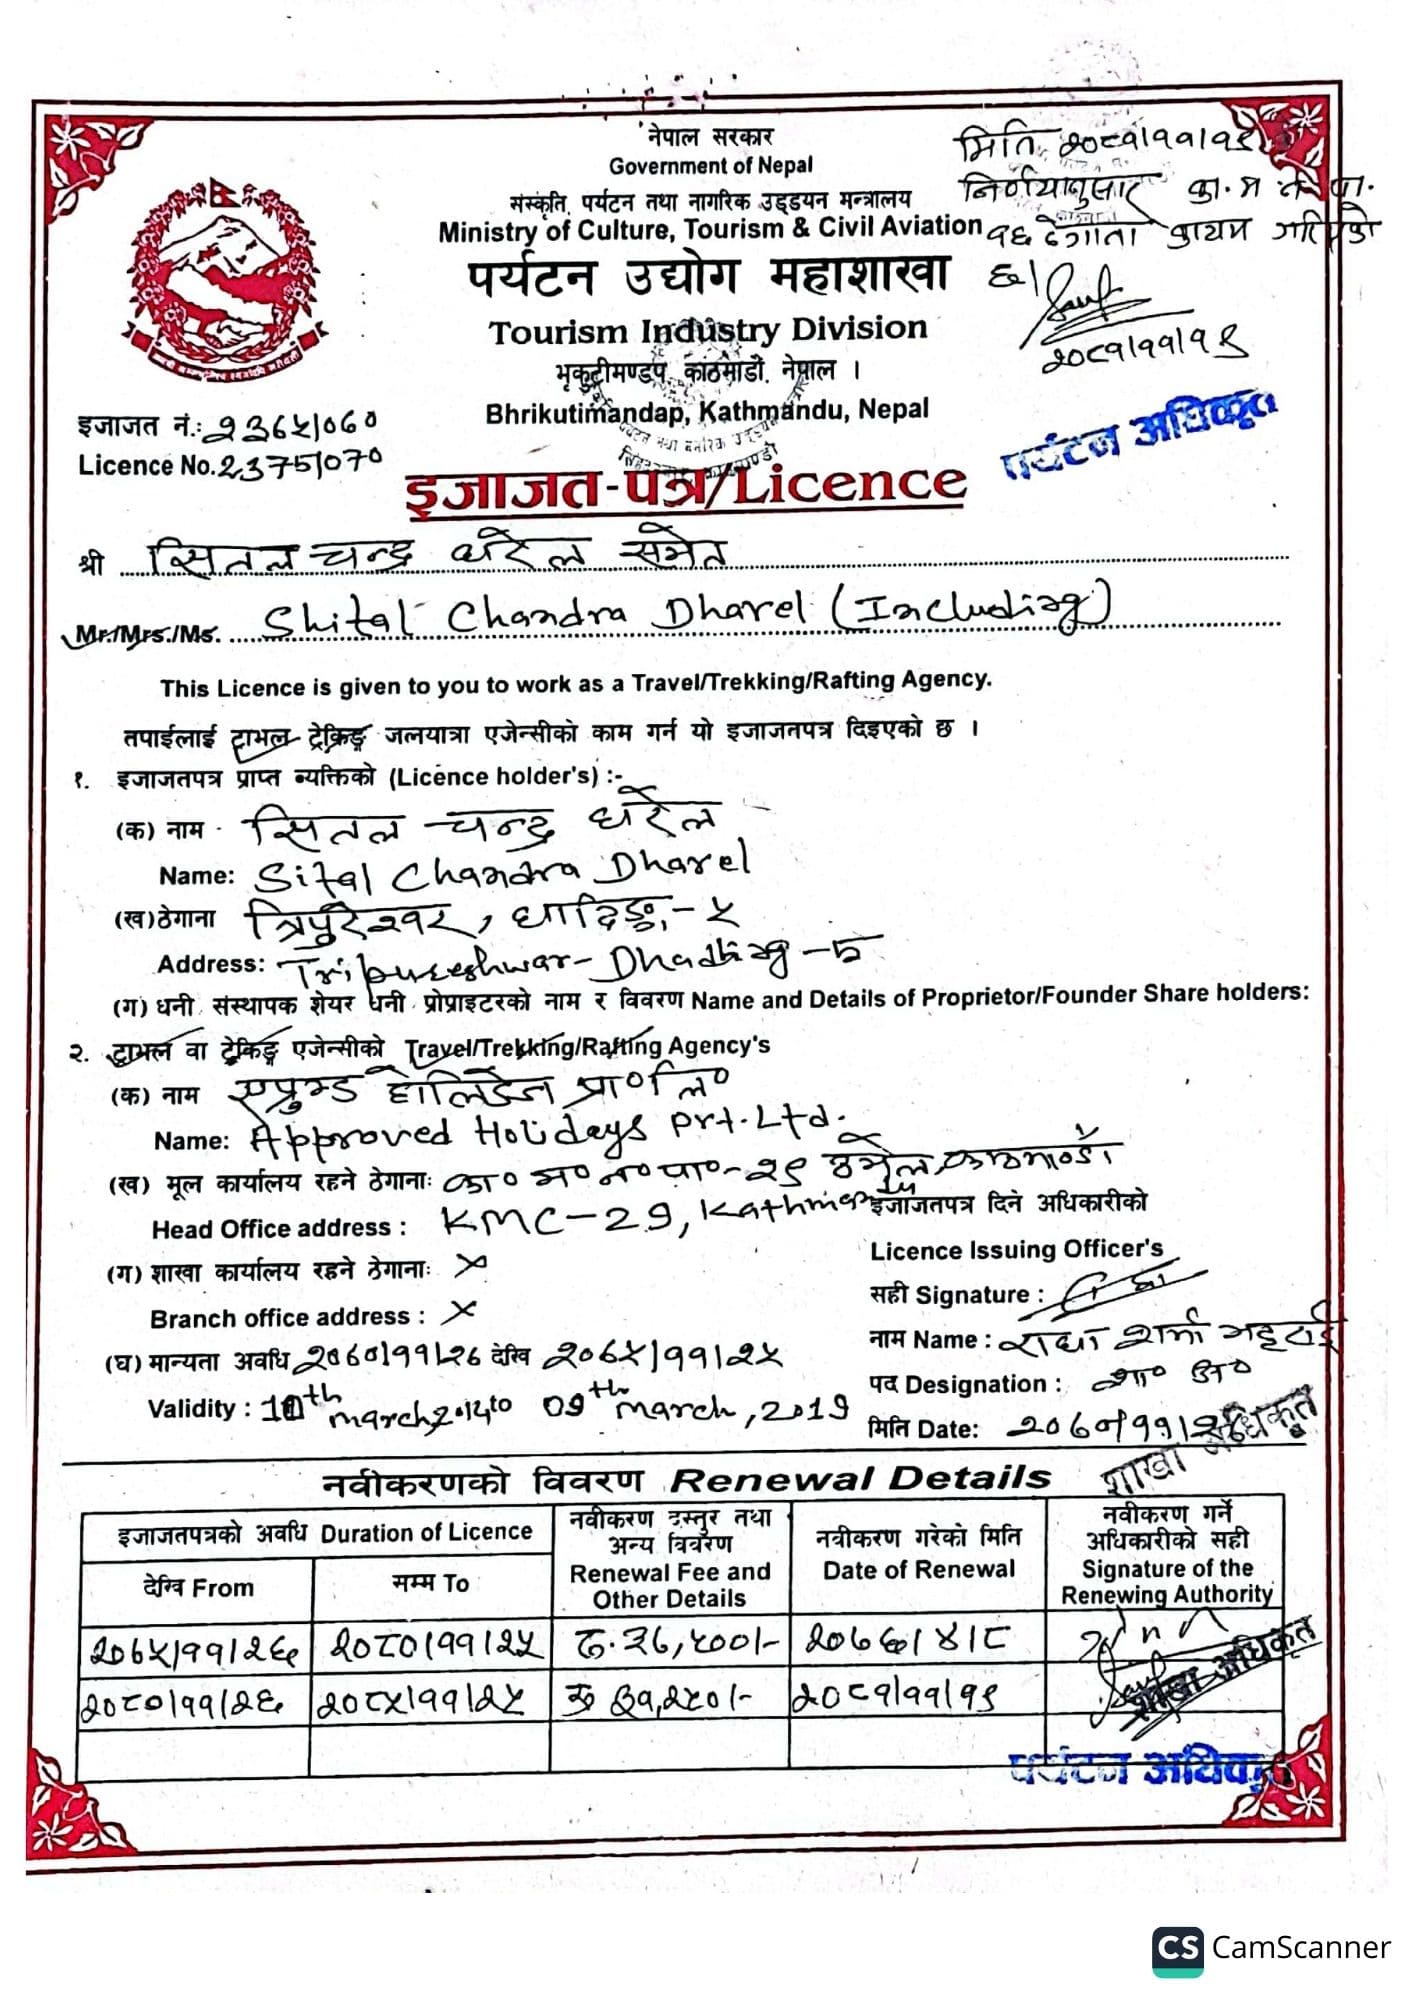 नेपाल सरकार
Government of Nepal
संस्कृति, पर्यटन तथा नागरिक उड्डयन मन्त्रालय
Ministry of Culture, Tourism & Civil Aviation
पर्यटन उद्योग महाशाखा
Tourism Industry Division
भृकुटीमण्डप, काठमाडौं, नेपाल ।
Bhrikutimandap, Kathmandu, Nepal
मिति २०८१/११/१९
निर्णयानुसार का.म.न.पा.
१६ ठेगाना कायम गरिएको
छ।
२०८१/११/१९
पर्यटन अधिकृत
इजाजत नं.:
Licence No. 2375/070
इजाजत-पत्र/Licence
श्री सितल चन्द्र धरेल समेत
Mr./Mrs./Ms. Shital Chandra Dharel (Including)
This Licence is given to you to work as a Travel/Trekking/Rafting Agency.
तपाईलाई ट्राभल ट्रेकिङ्ग जलयात्रा एजेन्सीको काम गर्न यो इजाजतपत्र दिइएको छ ।
१. इजाजतपत्र प्राप्त ब्यक्तिको (Licence holder's) :-
(क) नाम सितल चन्द्र धरेल
Name: Sital Chandra Dharel
(ख) ठेगाना त्रिपुरेश्वर, धादिङ्ग-५
Address: Tripureshwar-Dhadhing-5
(ग) धनी संस्थापक शेयर धनी प्रोप्राइटरको नाम र विवरण Name and Details of Proprietor/Founder Share holders:
२. ट्राभल वा ट्रेकिङ्ग एजेन्सीको Travel/Trekking/Rafting Agency's
(क) नाम एप्रुभ्ड होलिडेज प्रा० लि०
Name: Approved Holidays Pvt. Ltd.
(ख) मूल कार्यालय रहने ठेगानाः का० म० न० पा०-२९ ठमेल, काठमाण्डौं
Head Office address : KMC-29, Kathmandu
(ग) शाखा कार्यालय रहने ठेगानाः ×
Branch office address : ×
(घ) मान्यता अवधि २०७०/११/२६ देखि २०७५/११/२५
Validity : 10th march, 2014 to 09th march, 2019
इजाजतपत्र दिने अधिकारीको
Licence Issuing Officer's
सही Signature :
नाम Name : राधा शर्मा भट्टराई
पद Designation : शा० अ०
मिति Date: २०७०/११/२६
शाखा अधिकृत
नवीकरणको विवरण Renewal Details
इजाजतपत्रको अवधि Duration of Licence
देखि From
सम्म To
नवीकरण दस्तुर तथा
अन्य विवरण
Renewal Fee and
Other Details
नवीकरण गरेको मिति
Date of Renewal
नवीकरण गर्ने
अधिकारीको सही
Signature of the
Renewing Authority
२०७५/११/२६ २०८०/११/२५ रु. ३६,५००/- २०७६/४/८
शाखा अधिकृत
२०८०/११/२६ २०८५/११/२५ रु ३१,२५०/- २०८१/११/१९
पर्यटन अधिकृत
CS CamScanner